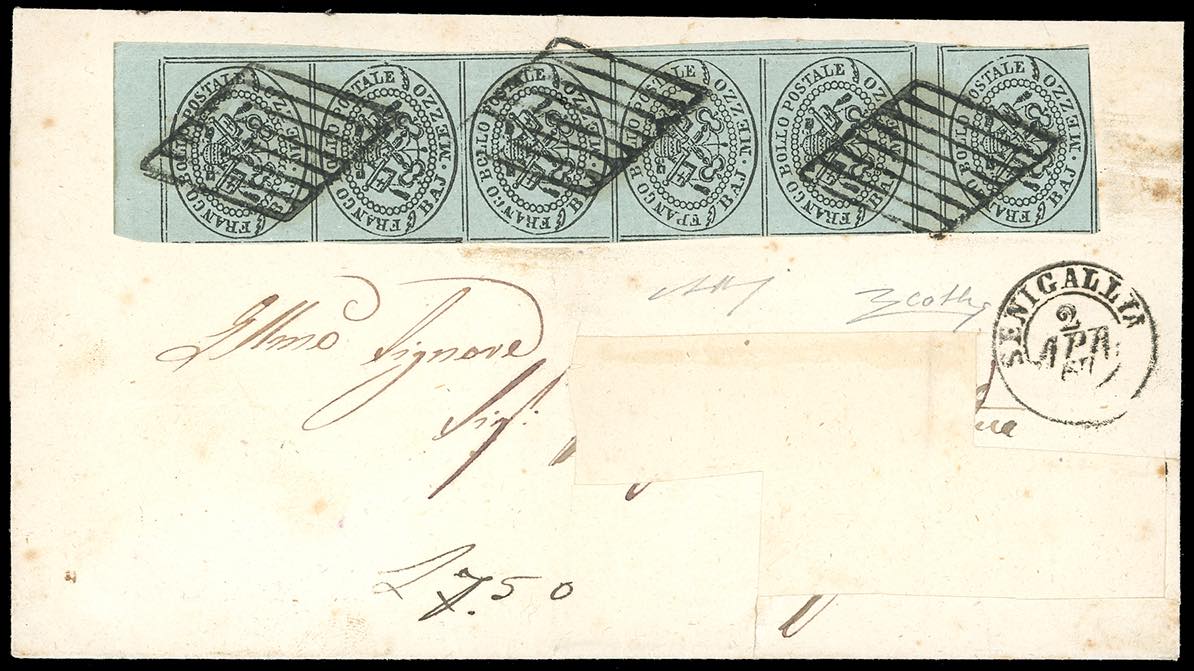 FRANCO BOLLO POSTALE MEZZO BAJ
FRANCO BOLLO POSTALE MEZZO BAJ
FRANCO BOLLO POSTALE MEZZO BAJ
FRANCO BOLLO POSTALE MEZZO BAJ
FRANCO BOLLO POSTALE MEZZO BAJ
FRANCO BOLLO POSTALE MEZZO BAJ
SENIGALLIA
2
APR
Illmo Signore
Sigr.
L 7.50